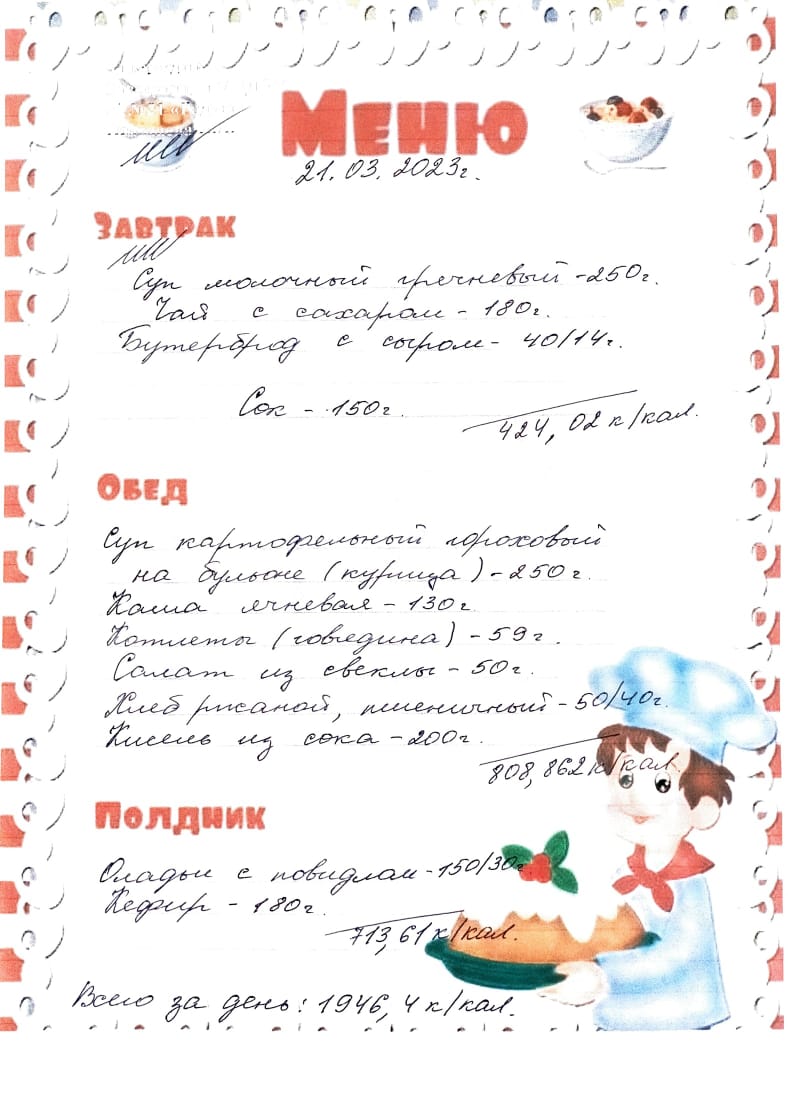 Меню
21.03.2023г.
Завтрак
Суп молочный гречневый - 250г.
Чай с сахаром - 180г.
Бутерброд с сыром - 40/14г.
Сок - 150г.
424,02 к/кал.
Обед
Суп картофельный гороховый
на бульоне (курица) - 250г.
Каша ячневая - 130г.
Котлеты (говядина) - 59г.
Салат из свеклы - 50г.
Хлеб ржаной, пшеничный - 50/40г.
Кисель из сока - 200г.
808,862 к/кал.
Полдник
Оладьи с повидлом - 150/30г
Кефир - 180г.
713,61 к/кал.
Всего за день: 1946,4 к/кал.